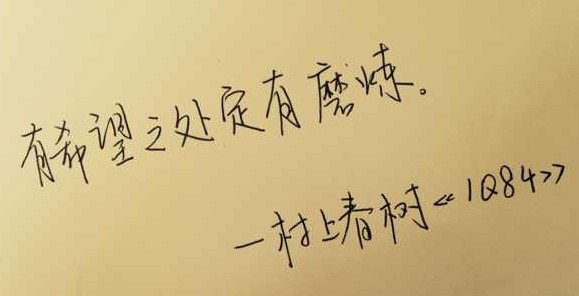 有希望之处定有磨炼。
—村上春树《1Q84》